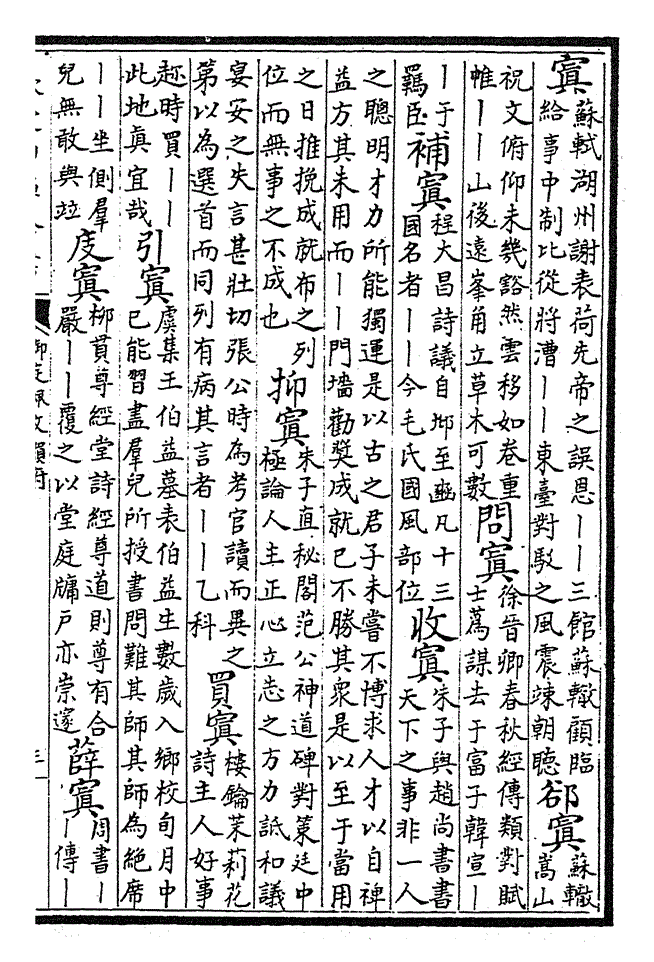 寘蘇軾湖州謝表荷先帝之誤恩丨丨三館蘇轍顧臨
給事中制比從將漕丨丨東臺對駁之風震竦朝聽
卻寘蘇轍
嵩山
祝文俯仰未幾豁然雲移如卷重
帷丨丨山後遠峯角立草木可數
問寘徐晉卿春秋經傳類對賦
士蒍謀去于富子韓宣丨
丨于
羈臣
補寘程大昌詩議自邶至豳凡十三
國名者丨丨今毛氏國風部位
收寘朱子與趙尚書書
天下之事非一人
之聰明才力所能獨運是以古之君子未嘗不博求人才以自裨
益方其未用而丨丨門墻勸奬成就已不勝其衆是以至于當用
之日推挽成就布之列
位而無事之不成也
抑寘朱子直秘閣范公神道碑對策廷中
極論人主正心立志之方力詆和議
宴安之失言甚壯切張公時為考官讀而異之
第以為選首而同列有病其言者丨丨乙科
買寘樓鑰茉莉花
詩主人好事
趂時買丨丨
此地真宜哉
引寘虞集王伯益墓表伯益生數歲入鄉校旬月中
已能習盡羣兒所授書問難其師其師為絶席
丨丨坐側羣
兒無敢與竝
庋寘柳貫尊經堂詩經尊道則尊有合
嚴丨丨覆之以堂庭牖戶亦崇邃
薛寘周書丨
丨傳丨
御定佩文韻府